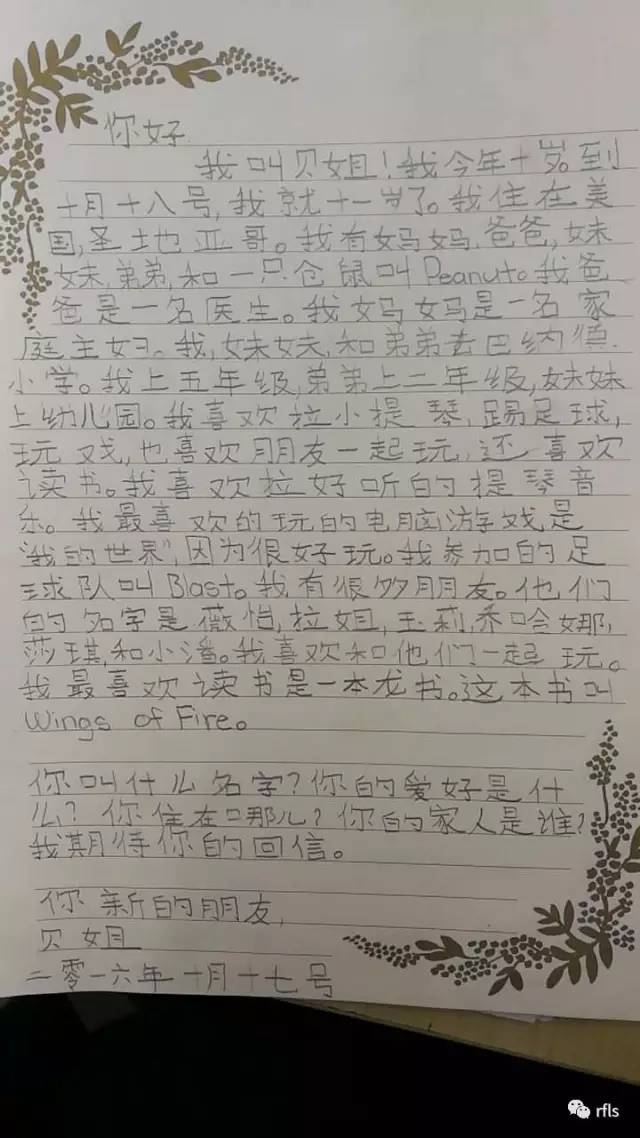 你好
我叫贝姐!我今年十岁。到
十月十八号,我就十一岁了。我住在美
国,圣地亚哥。我有妈妈,爸爸,妹
妹,弟弟,和一只仓鼠叫Peanut。我爸
爸是一名医生。我妈妈是一名家
庭主妇。我,妹妹,和弟弟去巴纳德
小学。我上五年级,弟弟上二年级,妹妹
上幼儿园。我喜欢拉小提琴,踢足球,
玩戏,也喜欢朋友一起玩,还喜欢
读书。我喜欢拉好听的提琴音
乐。我最喜欢的玩的电脑游戏是
“我的世界”,因为很好玩。我参加的足
球队叫Blast。我有很多朋友。他们
的名字是薇怡,拉姐,玉莉,乔哈娜,
莎琪,和小潘。我喜欢和他们一起玩。
我最喜欢读书是一本龙书。这本书叫
Wings of Fire。
你叫什么名字?你的爱好是什
么?你住在哪儿?你的家人是谁?
我期待你的回信。
你新的朋友,
贝姐
二零一六年十月十七号
rfls